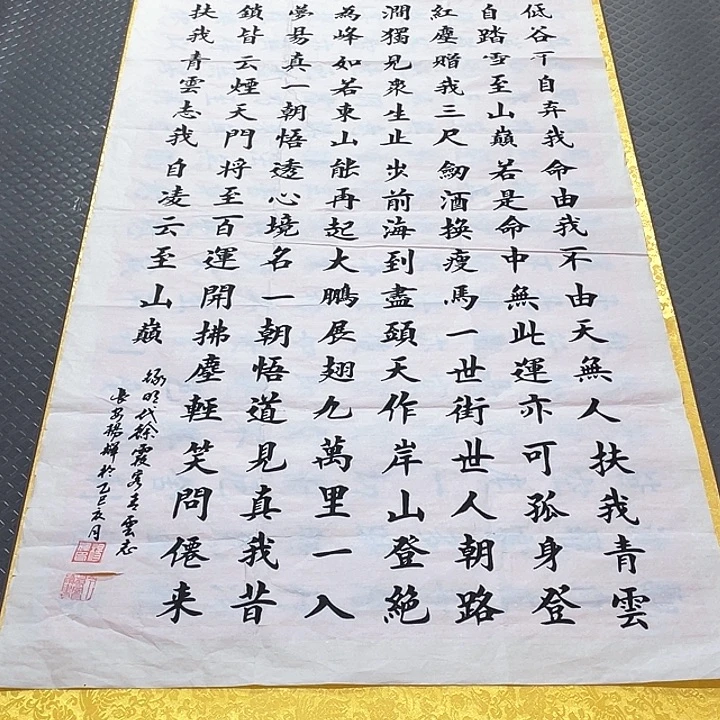 低谷下自弃我命由我不由天無人扶我青雲
自踏雪至山巔若是命中無此運亦可孤身登
紅塵贈我三尺劒酒換瘦馬一世街世人朝路
澗獨見衆生止步前海到盡頭天作岸山登絶
為峰如若東山能再起大鵬展翅九萬里一入
夢易真一朝悟透心境名一朝悟道見真我昔
鎖皆云煙天門将至百運開拂塵輕笑問僊来
扶我青雲志我自凌云至山巔
録明代徐霞客青雲志
長安楊輝於乙巳友月